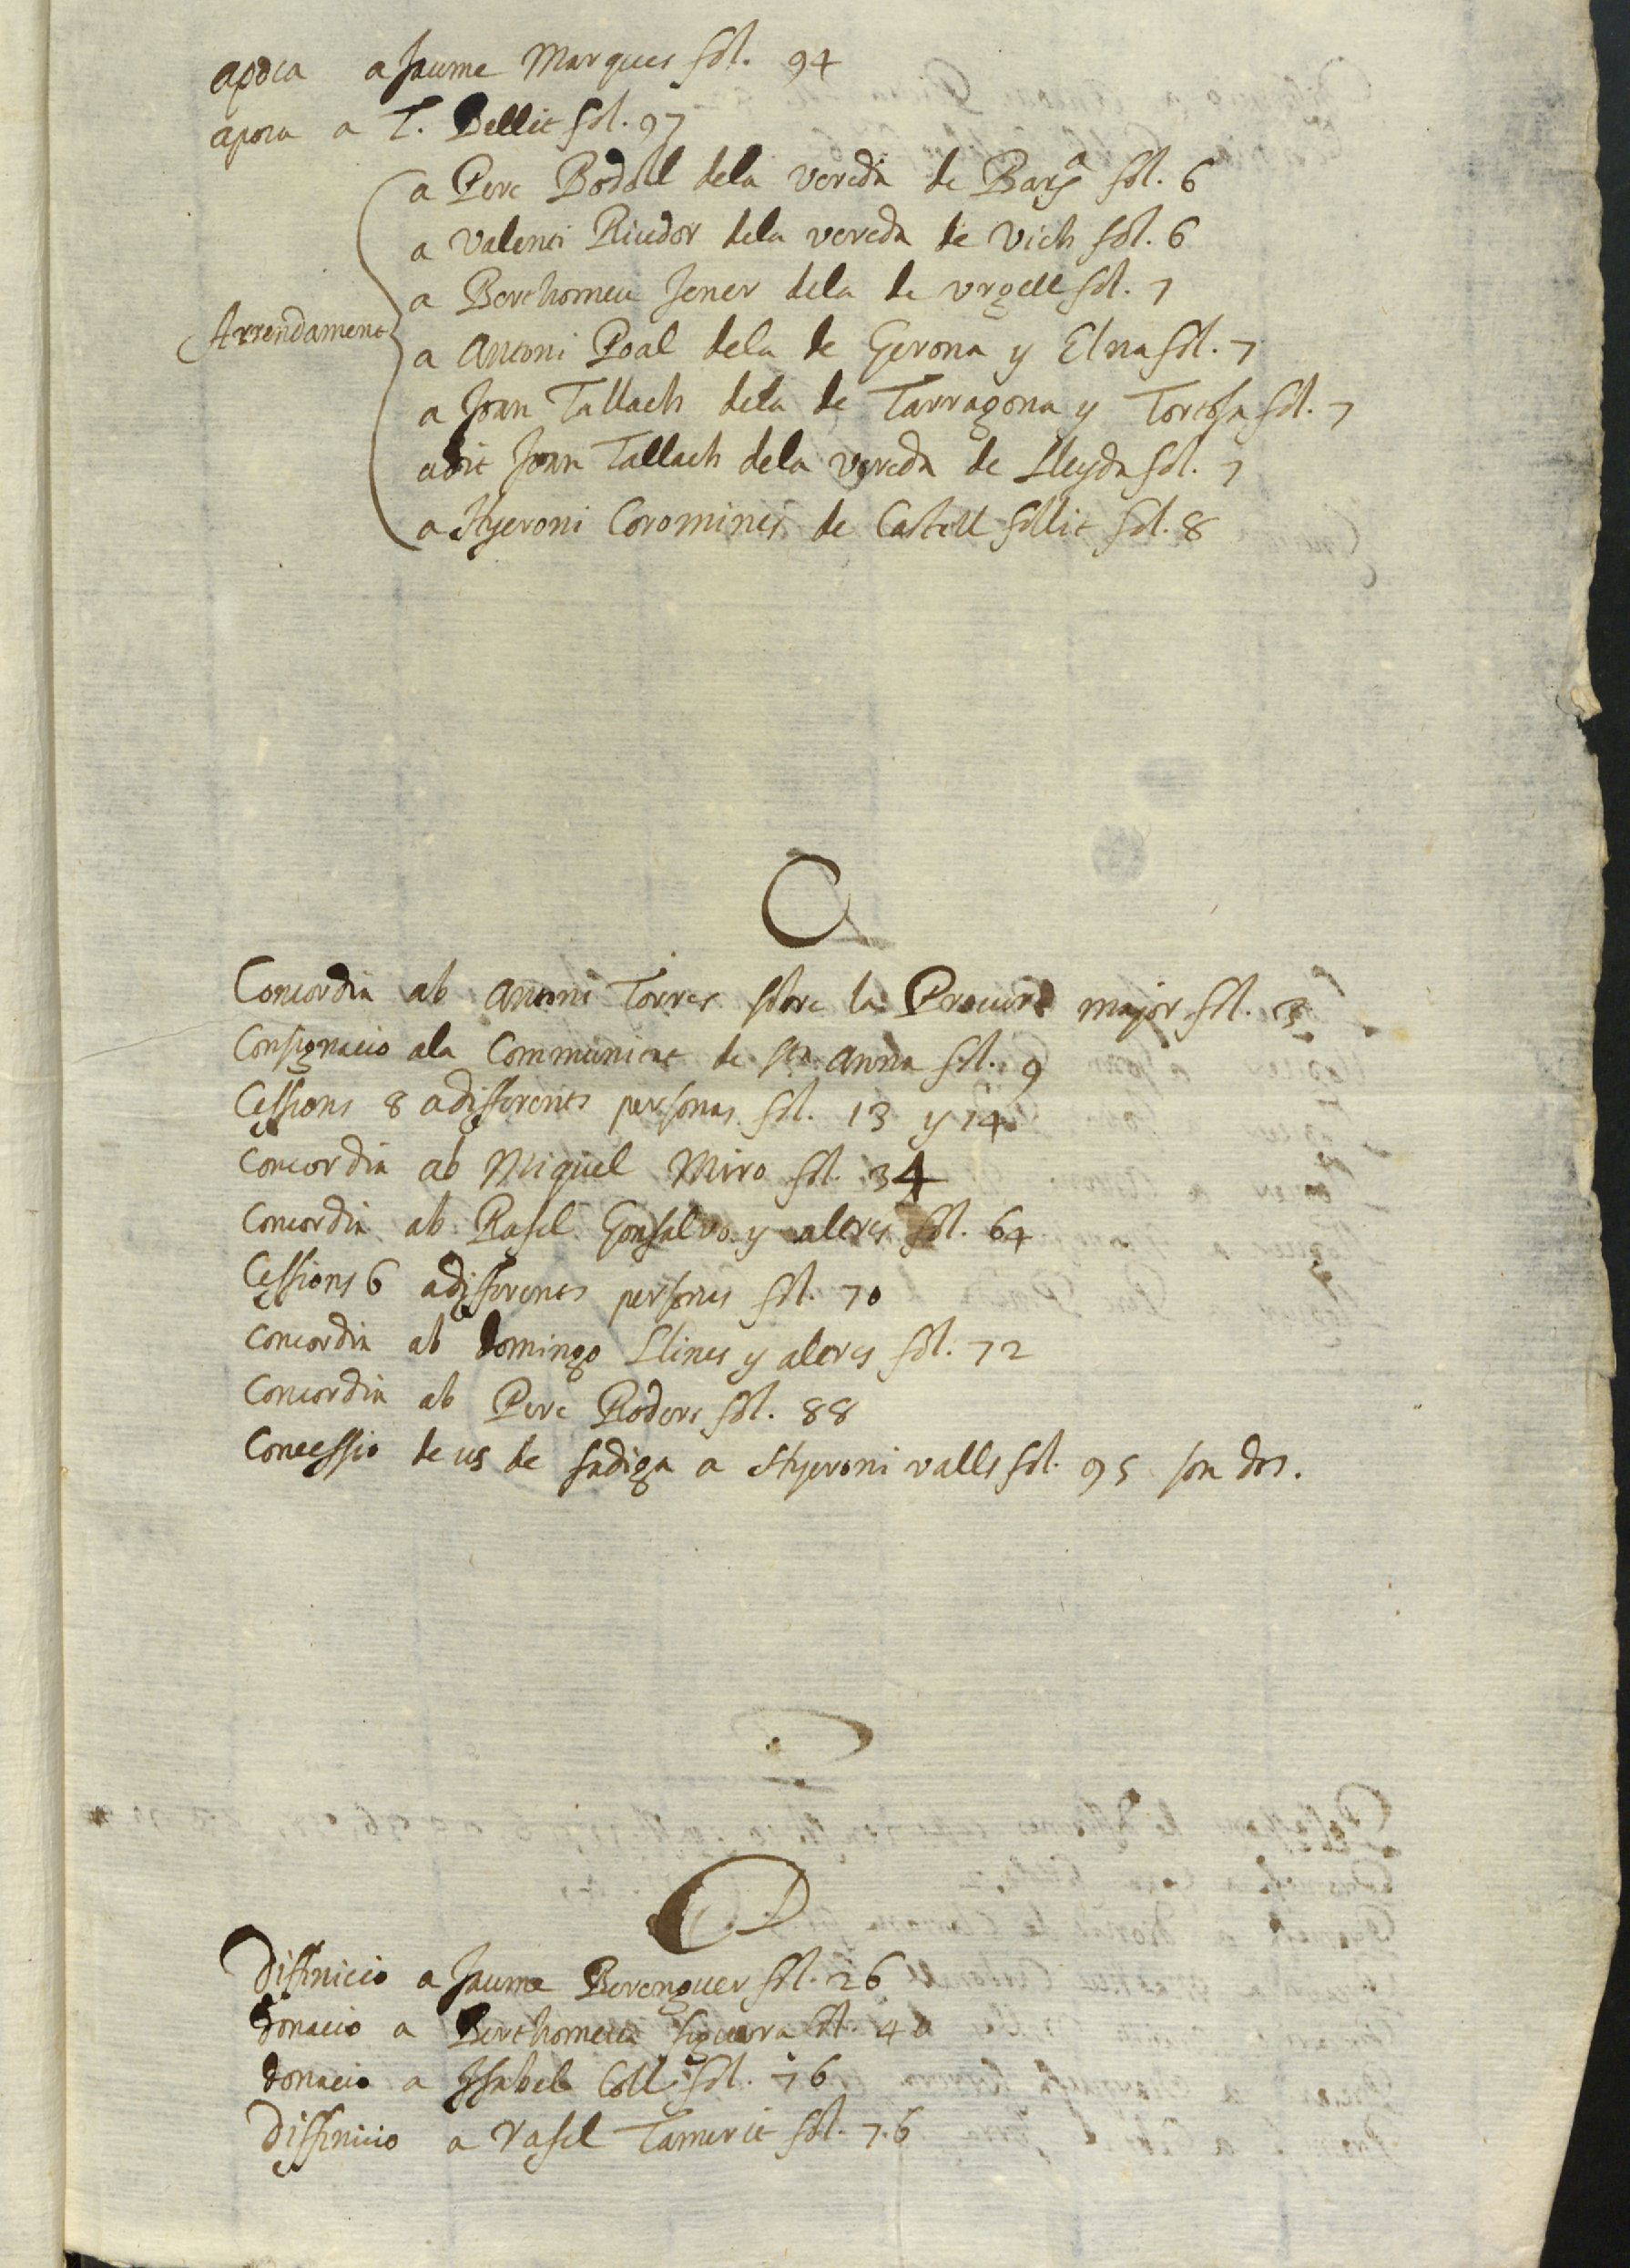 apoca a Jaume Marques fol. 94
apoca a T. Bellit fol. 97
Arrendament
a Pere Bodoll dela vereda de Barsª fol. 6
a Valenti Riudor dela vereda de Vich fol. 6
a Berthomeu Jener dela de Urgell fol. 7
a Antoni Poal dela de Gerona y Elna fol. 7
a Joan Tallach dela de Tarragona y Tortosa fol. 7
a dit Joan Tallach dela vereda de Lleyda fol. 7
a Hyeroni Coromines de Castellfollit fol. 8
C
Concordia ab Antoni Torres sobre la Procura major fol. 3
Consignacio ala Communitat de Stª Anna fol. 9
Cessions 8 a differents personas fol. 13 y 14
Concordia ab Miquel Miro fol. 34
Concordia ab Rafel Gonsalvo y altres fol. 64
Cessions 6 a differents persones fol. 70
Concordia ab domingo Llines y altres fol. 72
Concordia ab Pere Roders fol. 88
Concessio de us de fadiga a Hyeroni valls fol. 95 son dos.
D
Diffinicio a Jaume Berenguer fol. 26
donacio a Berthomeu figuera fol. 40
donacio a Isabel Coll fol. 76
Diffinicio a Rafel Tamerit fol. 76